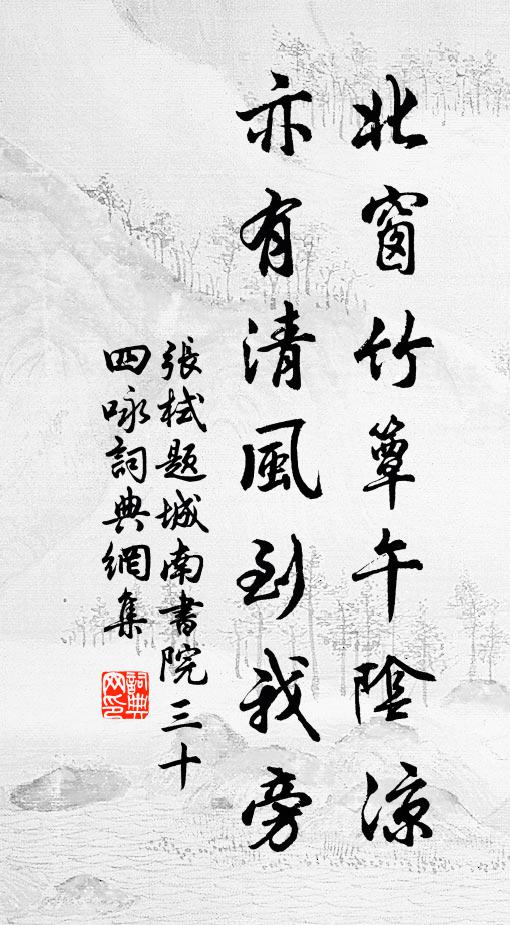 北窗竹簟午陰涼
亦有清風到我旁
張栻題城南書院三十
四咏詞典網集
詞典网印